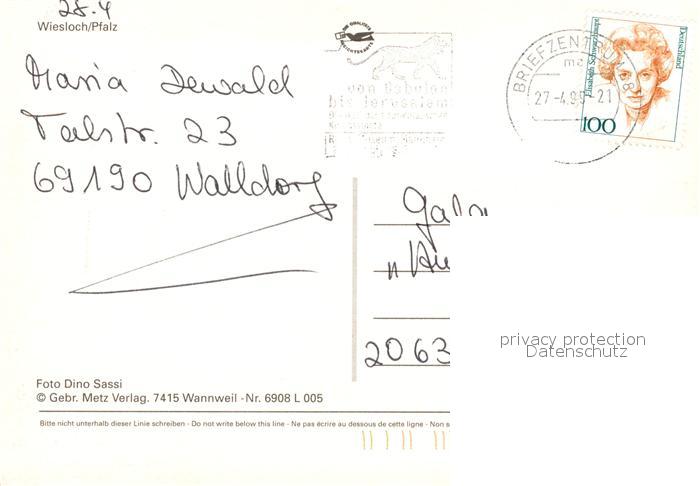 28.4
Wiesloch/Pfalz
Maria Dewald
Talstr. 23
69190 Walldorf
von Babylon
bis Jerusalem
BRIEFZENTRUM
27.-4.9 -21
Elisabeth Schwarzhaupt
Deutschland
100
2063
privacy protection
Datenschutz
Foto Dino Sassi
© Gebr. Metz Verlag. 7415 Wannweil - Nr. 6908 L 005
Bitte nicht unterhalb dieser Linie schreiben - Do not write below this line - Ne pas écrire au dessous de cette ligne - Non s